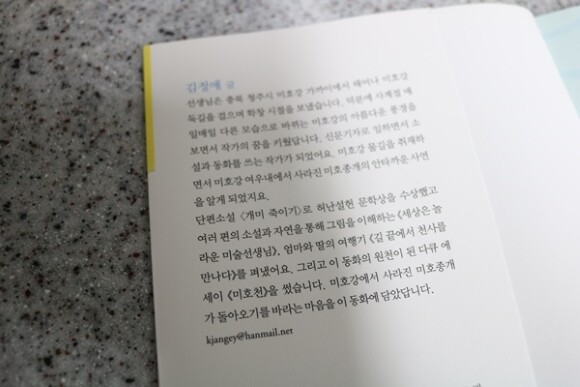 김정애 글
선생님은 충북 청주시 미호강 가까이에서 태어나 미호강
둑길을 걸으며 학창 시절을 보냈습니다. 덕분에 사계절 매
일매일 다른 모습으로 바뀌는 미호강의 아름다운 풍경을
보면서 작가의 꿈을 키웠답니다. 신문기자로 일하면서 소
설과 동화를 쓰는 작가가 되었어요. 미호강 물길을 취재하
면서 미호강 여우내에서 사라진 미호종개의 안타까운 사연
을 알게 되었지요.
단편소설 〈개미 죽이기〉로 허난설헌 문학상을 수상했고
여러 편의 소설과 자연을 통해 그림을 이해하는 《세상은 놀
라운 미술선생님》, 엄마와 딸의 여행기 《길 끝에서 천사를
만나다》를 펴냈어요. 그리고 이 동화의 원천이 된 다큐 에
세이 《미호천》을 썼습니다. 미호강에서 사라진 미호종개
가 돌아오기를 바라는 마음을 이 동화에 담았답니다.
kjangey@hanmail.net